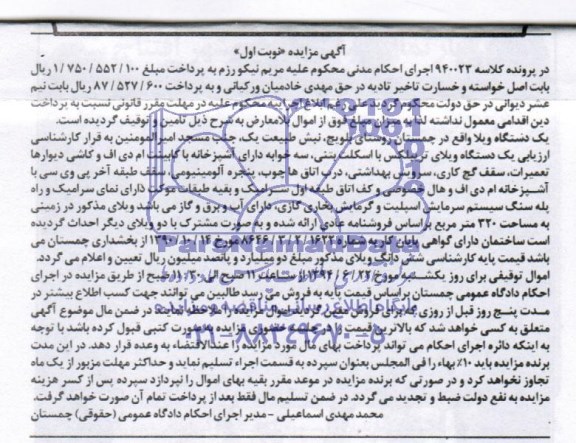 آگهی مزایده «نوبت اول»
در پرونده کلاسه ۹۴۰۰۲۳ اجرای احکام مدنی محکوم علیه مریم نیکو رزم به پرداخت مبلغ ۱/۷۵۰/۵۵۲/۱۰۰ ریال
بابت اصل خواسته و خسارت تاخیر تادیه در حق مهدی خادمیان ورکیانی و به پرداخت ۸۷/۵۲۷/۶۰۰ ریال بابت نیم
عشر دیوانی در حق دولت محکوم گردید علی رغم ابلاغ اجراییه محکوم علیه در مهلت مقرر قانونی نسبت به پرداخت
دین اقدامی معمول نداشته لذا به میزان مبلغ فوق از اموال بلامعارض به شرح ذیل تامین و توقیف گردیده است.
یک دستگاه ویلا واقع در چمستان روستای تلویج، نبش طبیعت یک، جنب مسجد امیرالمومنین به قرار کارشناسی
ارزیابی یک دستگاه ویلای تریبلکس با اسکلت بتنی، سه خوابه دارای آشپزخانه با کابینت ام دی اف و کاشی دیوارها
تعمیرات، سقف گچ کاری، سرویس بهداشتی، درب اتاق ها چوب، پنجره آلومینیومی، سقف طبقه آخر پی وی سی با
آشپزخانه ام دی اف و هال خصوصی و کف اتاق طبقه اول سرامیک و بقیه طبقات موکت دارای نمای سرامیک و راه
پله سنگ، سیستم سرمایش اسپلیت و گرمایش بخاری گازی، دارای آب و برق و گاز می باشد ویلای مذکور در زمینی
به مساحت ۳۲۰ متر مربع براساس فروشنامه عادی ارائه شده و به صورت مشترک با دو ویلای دیگر احداث گردیده
است ساختمان دارای گواهی پایان کار به شماره از بخشداری چمستان می
باشد قیمت پایه کارشناسی شش دانگ ویلای مذکور مبلغ دو میلیارد و پانصد میلیون ریال تعیین و اعلام می گردد.
اموال توقیفی برای روز یکشنبه مورخ ۱۳۹۴/۶/۲۲ از ساعت ۱۱ صبح الی ۱۱/۳۰ صبح از طریق مزایده در اجرای
احکام دادگاه عمومی چمستان براساس قیمت پایه به فروش می رسد طالبین می توانند جهت کسب اطلاع بیشتر در
مدت پنج روز قبل از روزی که برای فروش معین گردیده اموال مزایده را ملاحظه نمایند در ضمن مال موضوع آگهی
متعلق به کسی خواهد شد که بالاترین قیمت را در جلسه حضوری مزایده به صورت کتبی قبول کرده باشد با توجه
به اینکه دائره اجرای احکام می تواند پرداخت بهای مال مورد مزایده را عندالاقتضاء به وعده قرار دهد. در این مدت
برنده مزایده باید ۱۰٪ بهاء را فی المجلس بعنوان سپرده به قسمت اجراء تسلیم نماید و حداکثر مهلت مزبور از یک ماه
تجاوز نخواهد کرد و در صورتی که برنده مزایده در موعد مقرر بقیه بهای اموال را نپردازد سپرده پس از کسر هزینه
مزایده به نفع دولت ضبط و تجدید می گردد. در ضمن تسلیم مال فقط بعد از پرداخت تمام آن صورت خواهد گرفت.
محمد مهدی اسماعیلی - مدیر اجرای احکام دادگاه عمومی (حقوقی) چمستان
پایگاه اطلاع رسانی مناقصه و مزایده
۰۲۱-۸۸۳۴۹۶۷۰-۵